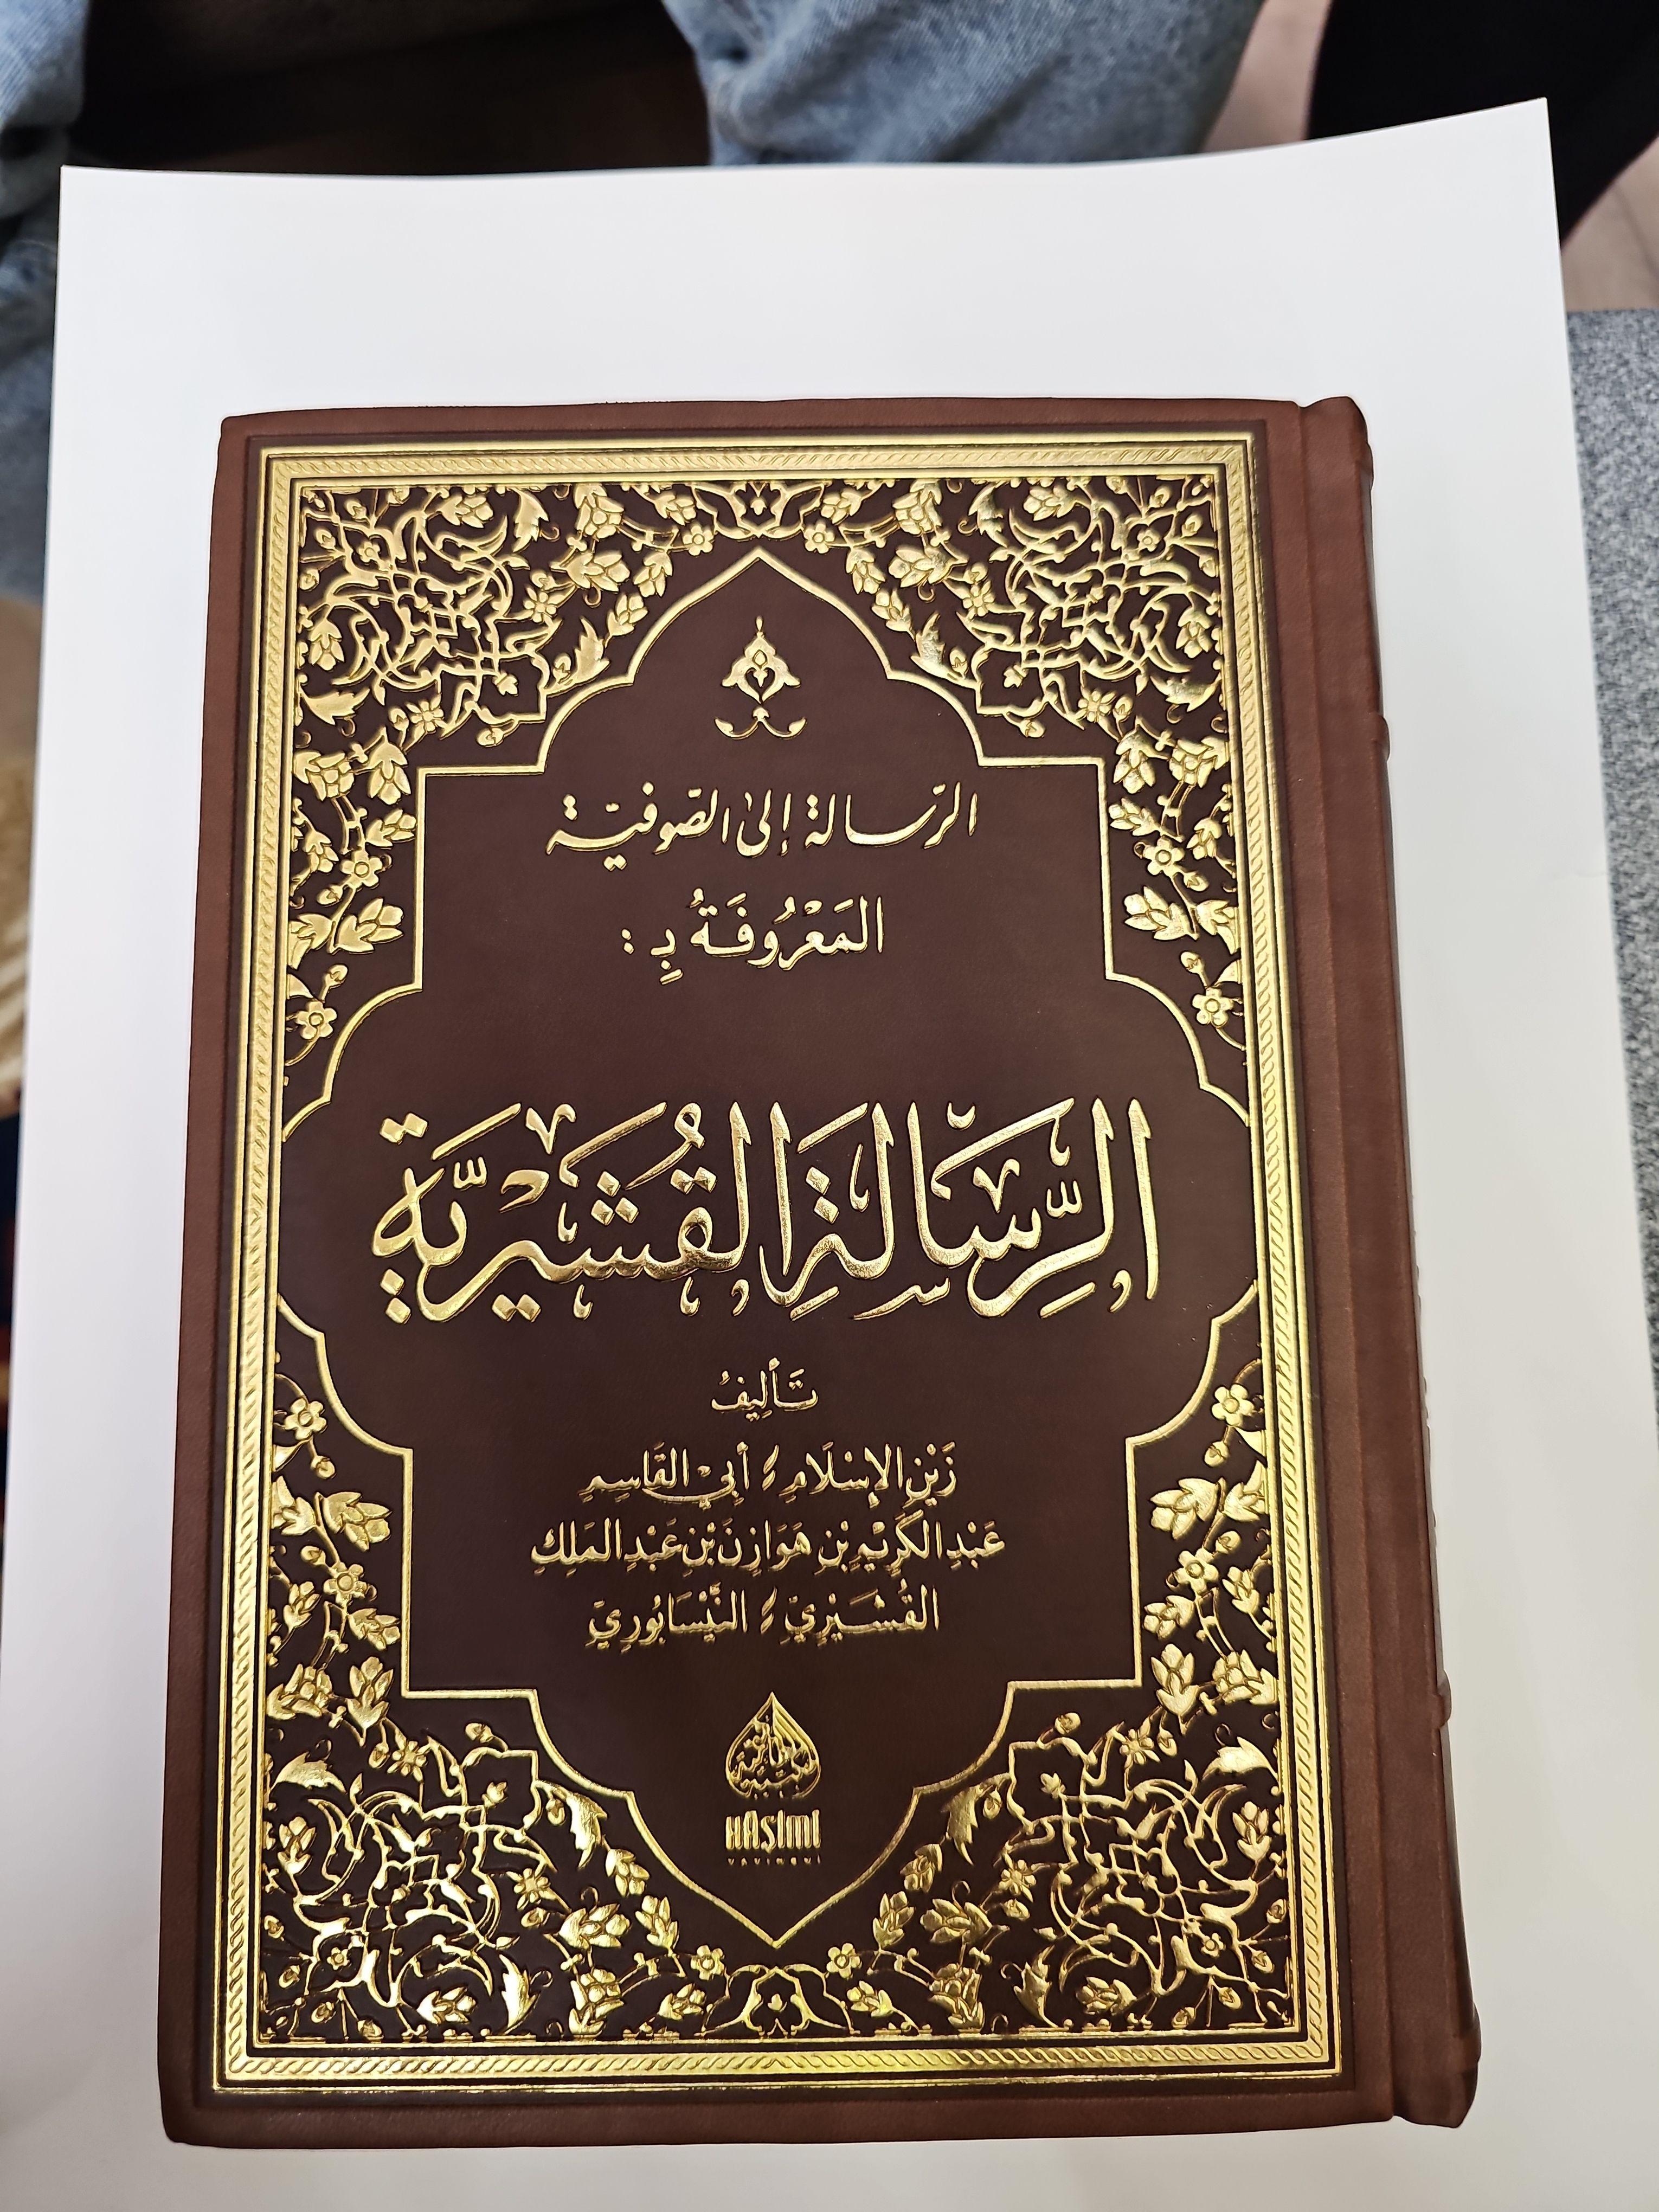 الرّسالة إلى الصّوفيّة
المَعْرُوفَةُ بِـ :
الرِّسَالَةِ القُشَيْرِيَّةِ
تَأليفُ
زَيْنِ الإِسْلَامِ / أَبِيْ القَاسِمِ
عَبْدِ الكَرِيْمِ بْنِ هَوَازِنَ بْنِ عَبْدِ المَلِكِ
القُشَيْرِيّ / النَّيْسَابُورِيّ
HAŞİMİ
YAYINEVİ